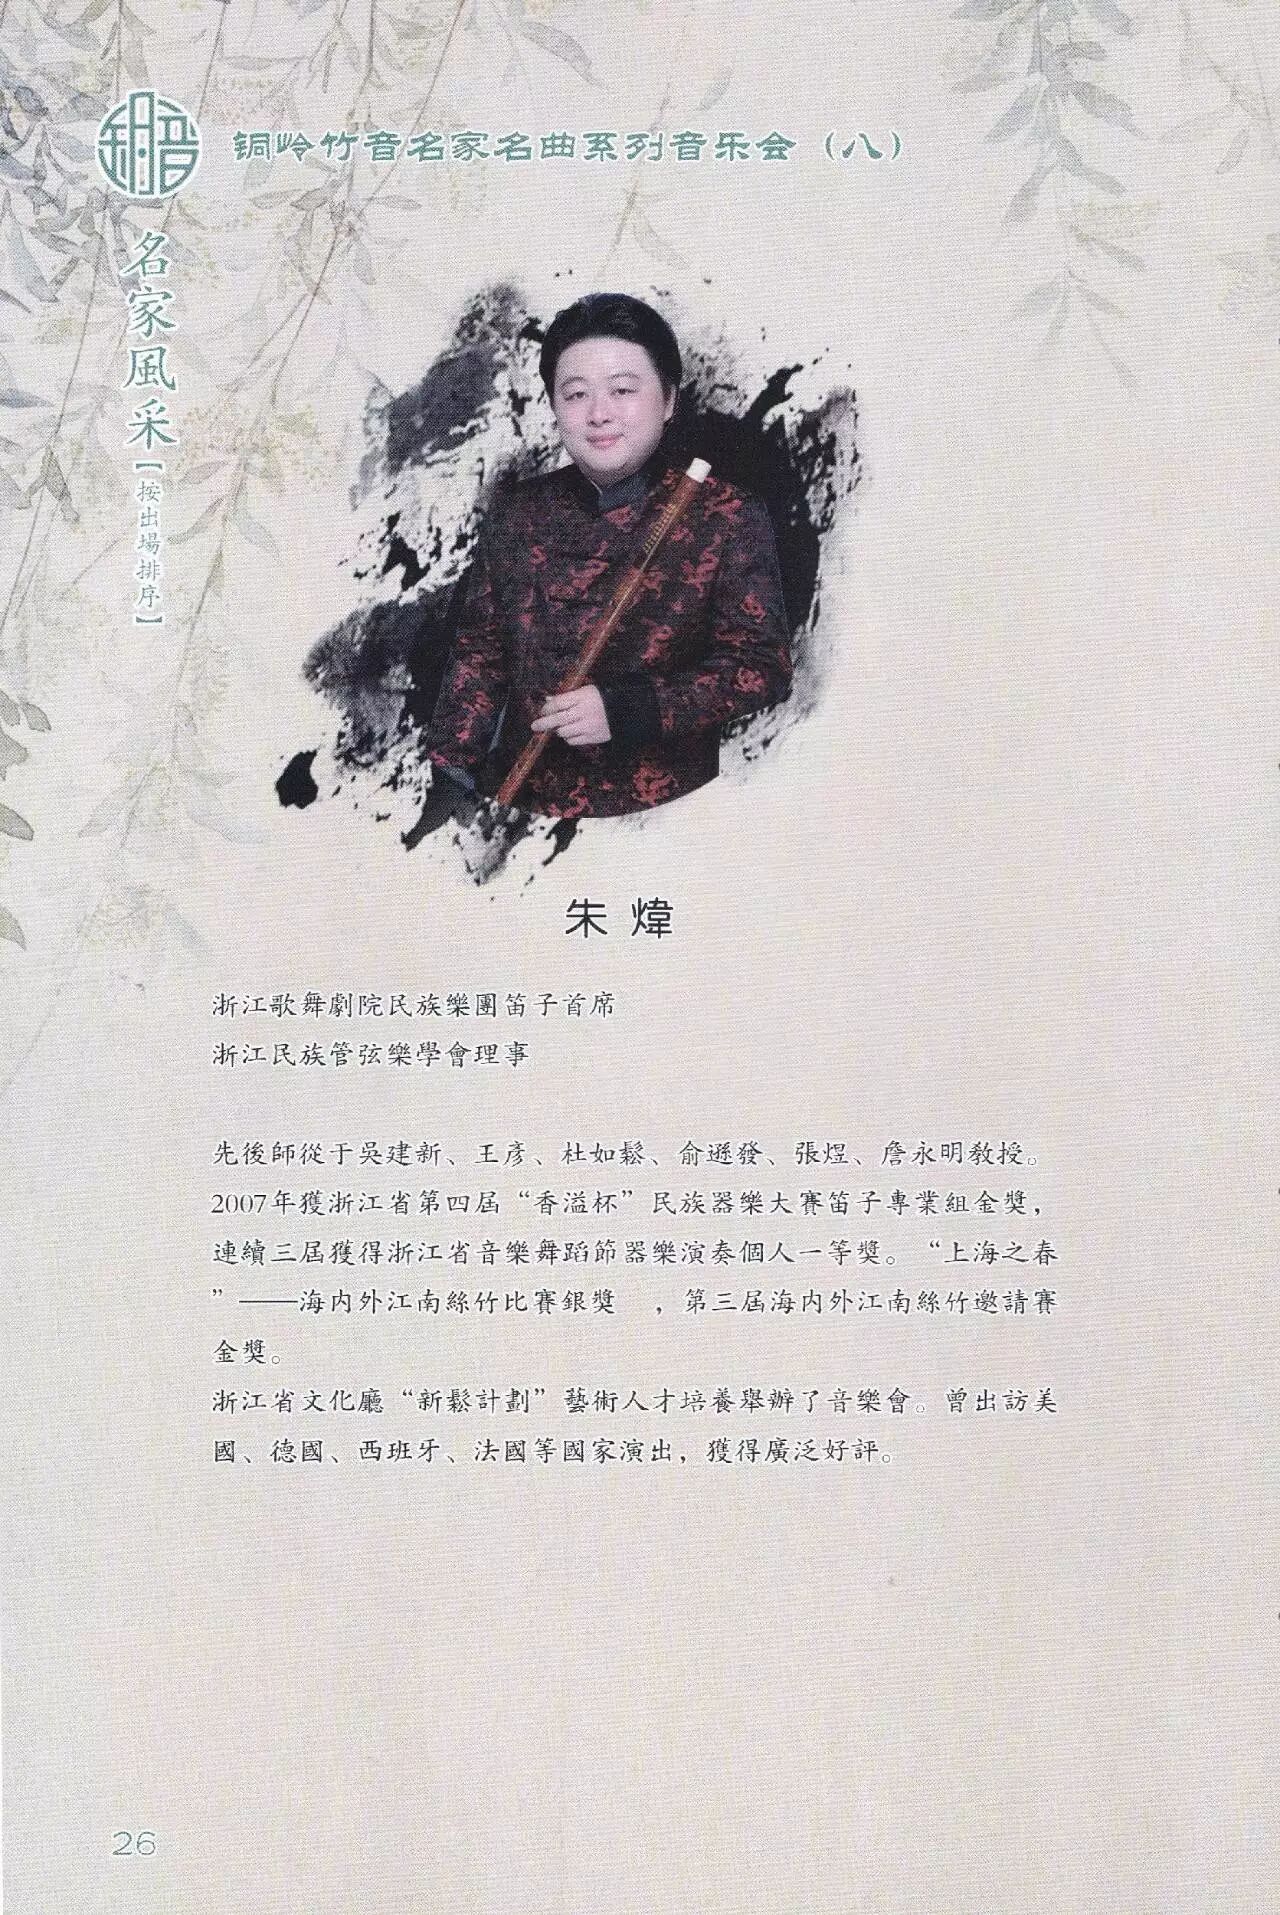 铜岭竹音名家名曲系列音乐会（八）
名家風采【按出場排序】
朱煒
浙江歌舞劇院民族樂團笛子首席
浙江民族管弦樂學會理事
先後師從于吳建新、王彥、杜如鬆、俞遜發、張煜、詹永明教授。
2007年獲浙江省第四屆“香溢杯”民族器樂大賽笛子專業組金獎，
連續三屆獲得浙江省音樂舞蹈節器樂演奏個人一等獎。“上海之春
”——海内外江南絲竹比賽銀獎 ，第三屆海内外江南絲竹邀請賽
金獎。
浙江省文化廳“新鬆計劃”藝術人才培養舉辦了音樂會。曾出訪美
國、德國、西班牙、法國等國家演出，獲得廣泛好評。
26